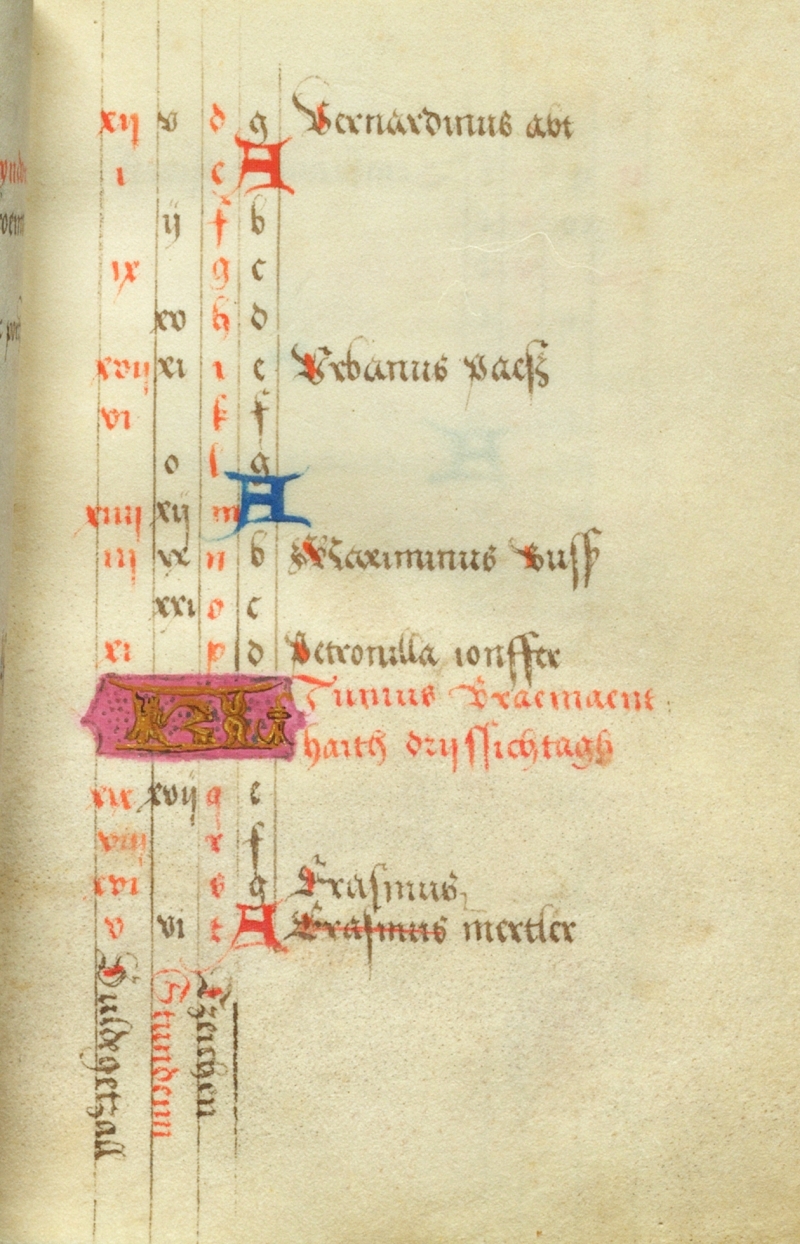 xij v d g Bernardinus abt
i e A
ij f b
ix g c
xv h d
xvij xi i e Vrbanus paeß
vi k f
o l g
xiiij xij m A
iij vx n b Maximinus buss
xxi o c
xi p d Petronilla ionffer
KL Junius Braemaent
haith drijssichtagh
xix xvij q e
viij r f
xvi s g Erasmus
v vi t A Erasmus mertler
Guldegetzall
Stundenn
Tzeichen